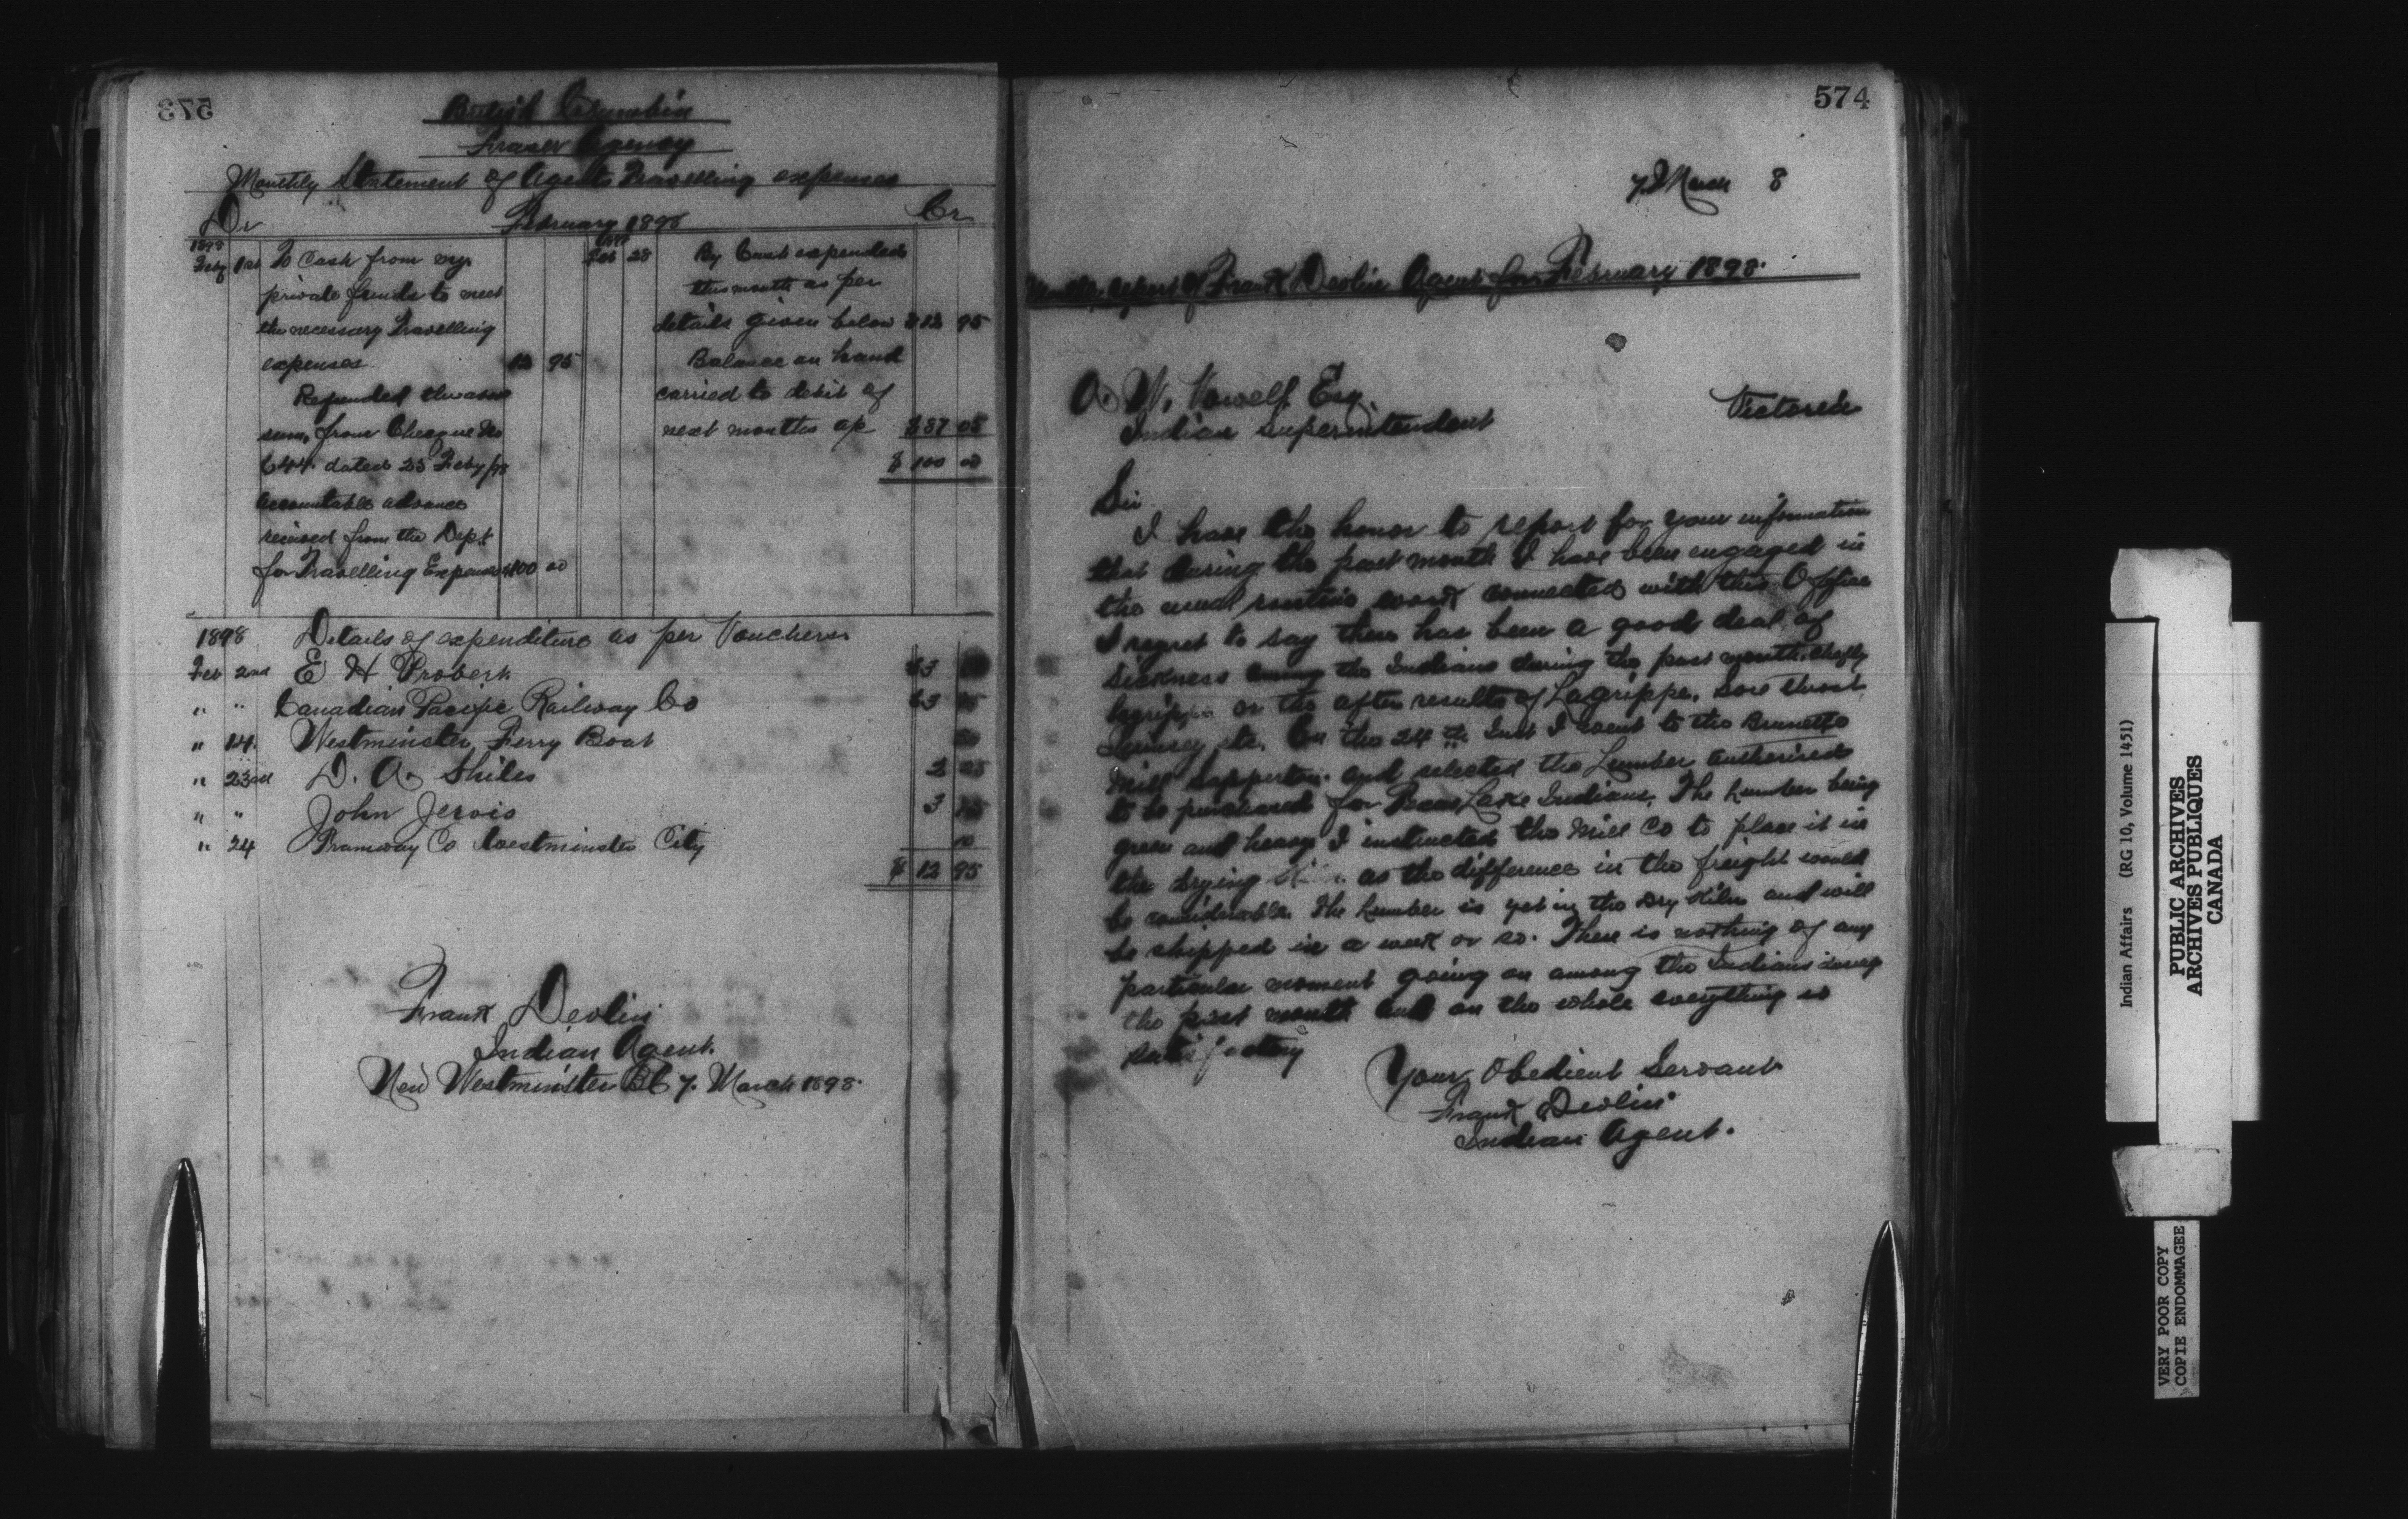 573
British Columbia
Fraser Agency
Monthly Statement of Agents Travelling expenses
Dr February 1898 Cr
1898
Feby 1st To Cash from my
private funds to meet
the necessary Travelling
expenses 12 95
Refunded the above
sum, from Cheque No
644 dated 23 Feby/98
accountable advance
received from the Dept
for Travelling Expenses $100 00
Feb 28 By Cash expended
this month as per
details given below $12 95
Balance on hand
carried to debit of
next months a/c $87 05
$100 00
1898 Details of expenditure as per Vouchers
Feb 2nd E H
" " Canadian Pacific Railway Co
" 14 Westminster Ferry Boat
" 23rd D. A. Shiles
" " John Jervis 3
" 24 Tramway Co Westminster City 10
$12 95
Frank Devlin
Indian Agent.
New Westminster BC 7. March 1898.
574
7 March 8
Monthly report of Frank Devlin Agent for February 1898.
A. W. Vowell Esq.
Indian Superintendent
Victoria
Sir
I have the honor to report for your information
that during the past month I have been engaged in
the usual routine work connected with this Office
I regret to say there has been a good deal of
sickness among the Indians during the past month, chiefly
lagrippe or the after results of Lagrippe, sore throat,
Quinsey etc. On the 24th Inst I went to the Brunette
Mill Sapperton and selected the Lumber authorised
to be purchased for Indians. The Lumber being
green and heavy I instructed the Mill Co to place it in
the drying as the difference in the freight would
be considerable. The Lumber is yet in the Dry Kiln and will
be shipped in a week or so. There is nothing of any
particular moment going on among the Indians during
the past month and on the whole everything is
satisfactory
Your Obedient Servant
Frank Devlin
Indian Agent.
Indian Affairs (RG 10, Volume 1451)
PUBLIC ARCHIVES
ARCHIVES PUBLIQUES
CANADA
VERY POOR COPY
COPIE ENDOMMAGEE